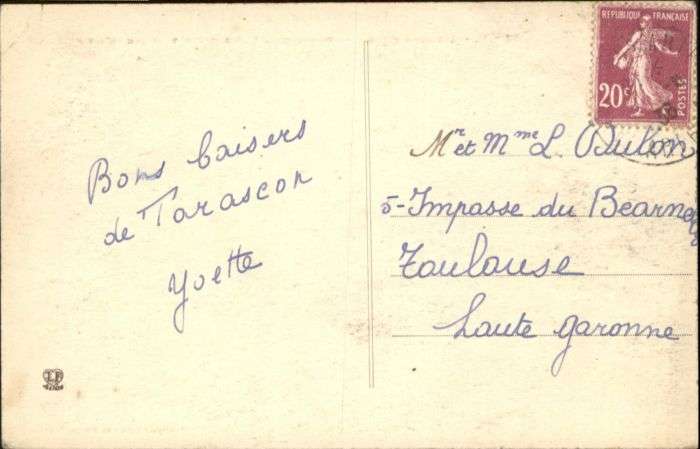 Bons baisers
de Tarascon
Yvette
REPUBLIQUE FRANÇAISE
20c
POSTES
Mr et Mme L. Dulon
5-Impasse du Bearnais
Toulouse
Haute Garonne